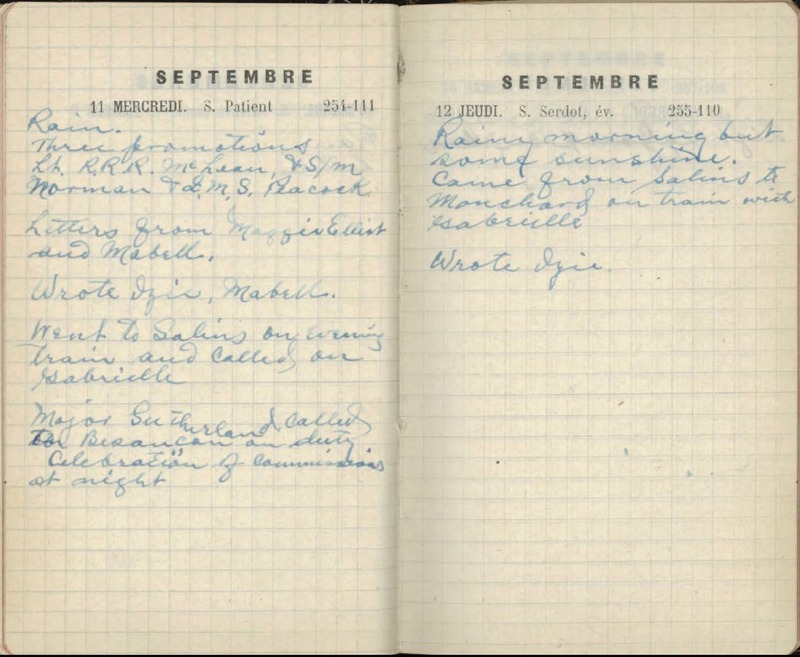 SEPTEMBRE
11 MERCREDI. S. Patient 254-111
Rain.
Three promotions
Lt. R.R.R. McLean, & S/m
Norman & L.M.S. Peacock
Letters from Maggie Elliot
and Mabell.
Wrote Izie, Mabell.
Went to Salins on evening
train and called on
Gabrielle
Major Sutherland called
to Besancon on duty
Celebration of commissions
at night
SEPTEMBRE
12 JEUDI. S. Serdot, év. 255-110
Rainy morning but
some sunshine.
Came from Salins to
Mouchard on train with
Gabrielle
Wrote Izie.